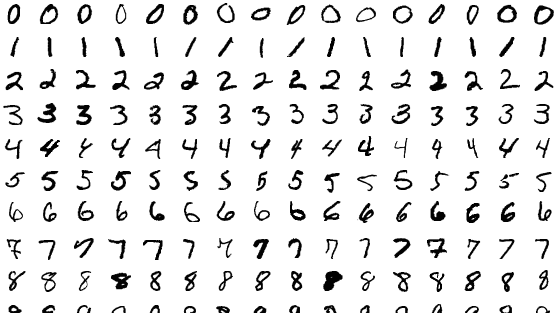 0 0 0 0 0 0 0 0 0 0 0 0 0 0 0 0
1 1 1 1 1 1 1 1 1 1 1 1 1 1 1 1
2 2 2 2 2 2 2 2 2 2 2 2 2 2 2 2
3 3 3 3 3 3 3 3 3 3 3 3 3 3 3 3
4 4 4 4 4 4 4 4 4 4 4 4 4 4 4 4
5 5 5 5 5 5 5 5 5 5 5 5 5 5 5 5
6 6 6 6 6 6 6 6 6 6 6 6 6 6 6 6
7 7 7 7 7 7 7 7 7 7 7 7 7 7 7 7
8 8 8 8 8 8 8 8 8 8 8 8 8 8 8 8